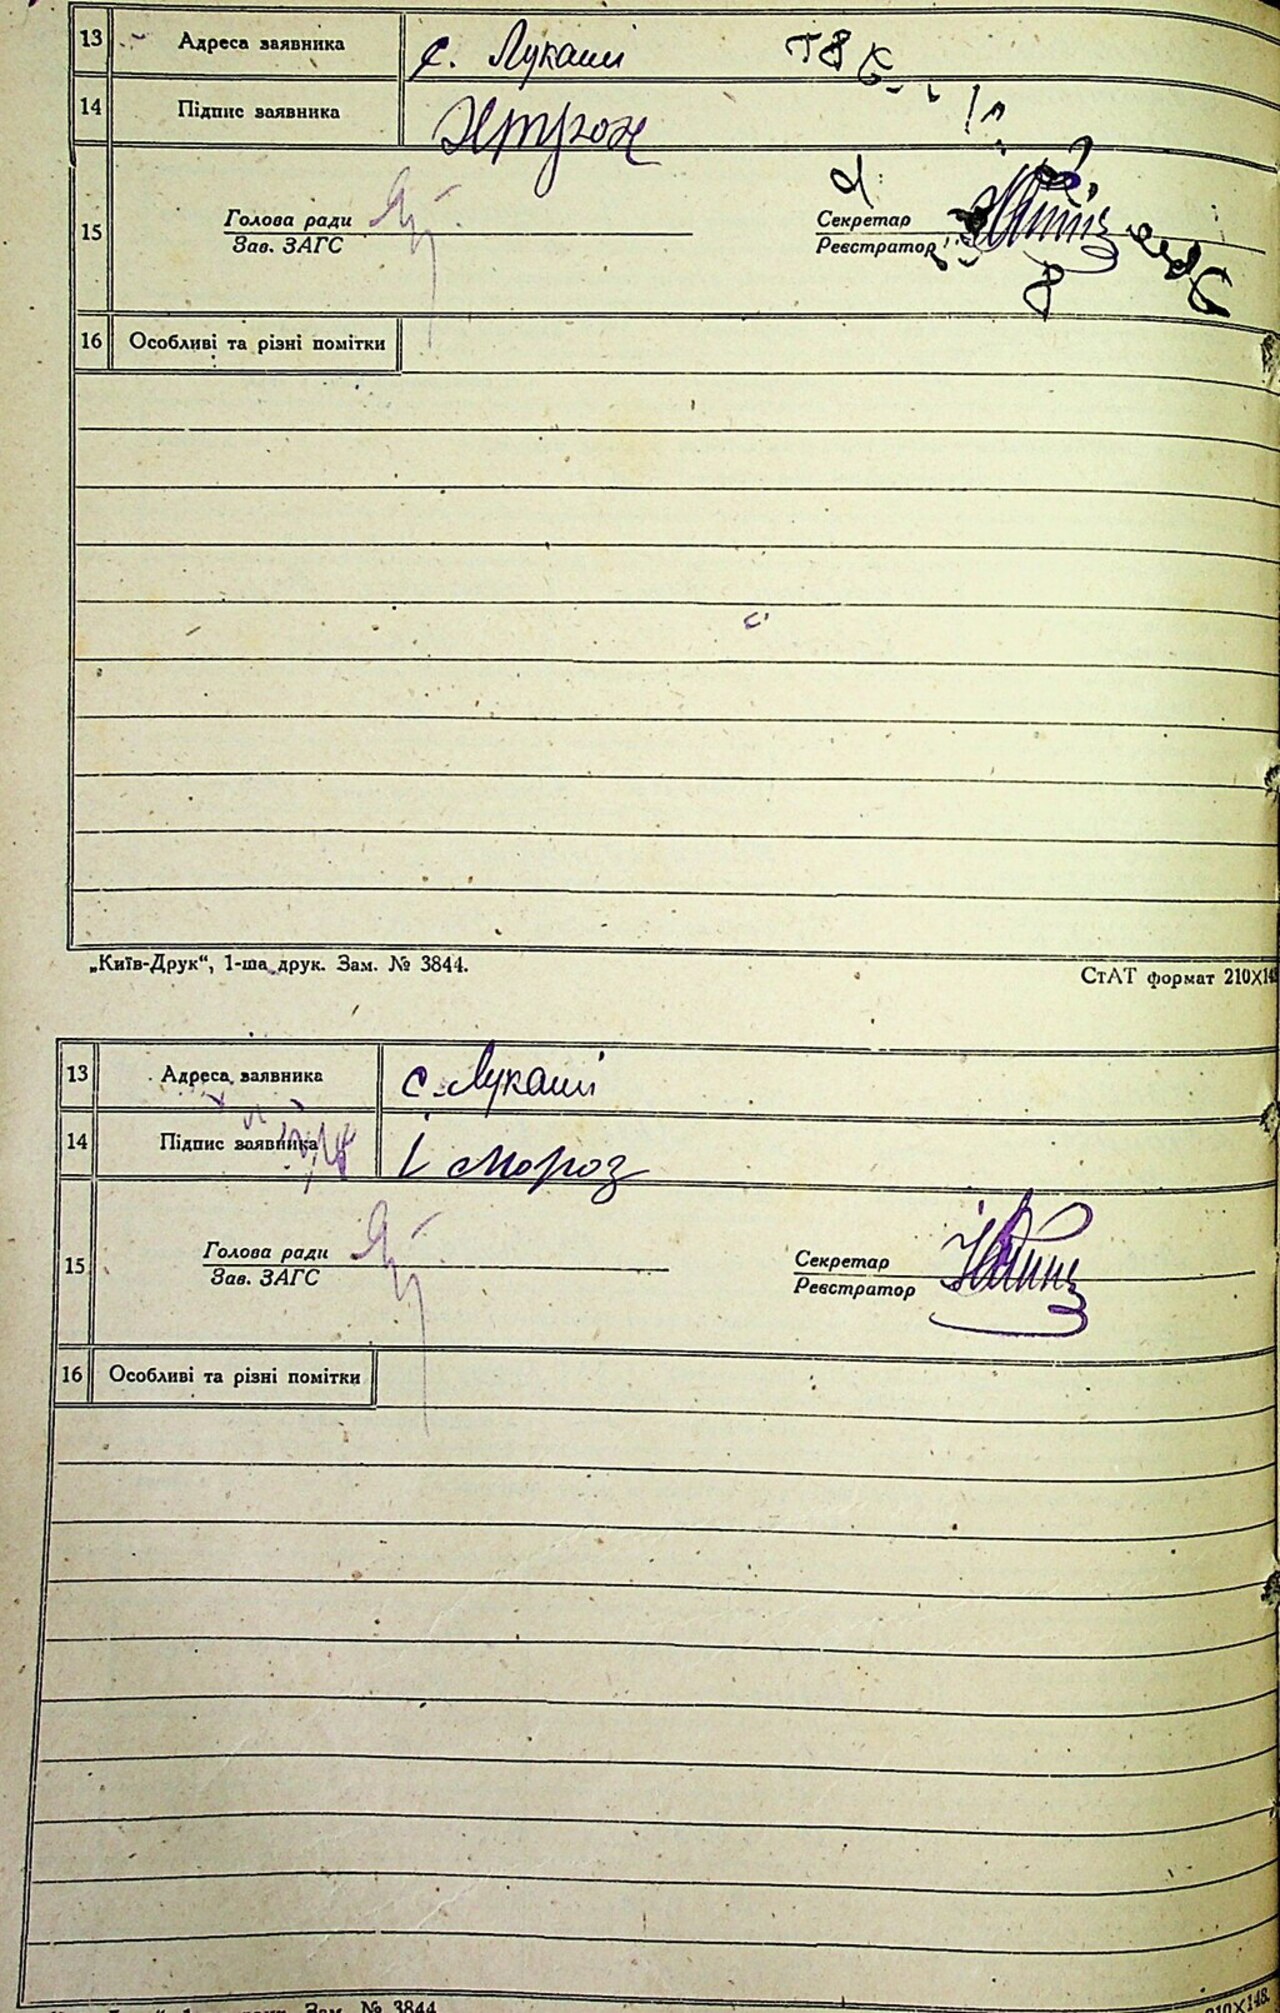 13 Адреса заявника с. Лукаші
14 Підпис заявника
15 Голова ради Секретар
Зав. ЗАГС Реєстратор
16 Особливі та різні помітки
„Київ-Друк“, 1-ша друк. Зам. № 3844. СтАТ формат 210X148
13 Адреса заявника с. Лукаші
14 Підпис заявника І Мороз
15 Голова ради Секретар
Зав. ЗАГС Реєстратор
16 Особливі та різні помітки
Зам. № 3844 210X148.